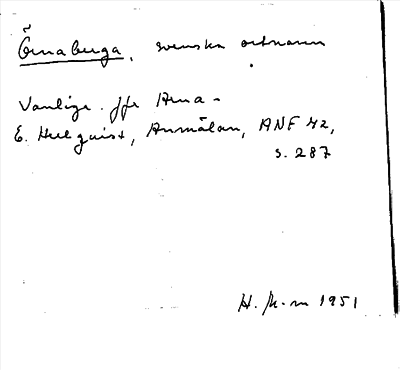 Örnaberga, svenska ortnamn
Vanlige. jfr Arna-
E. Hellquist, Anmälan, ANF 42,
s. 287
H. 1951